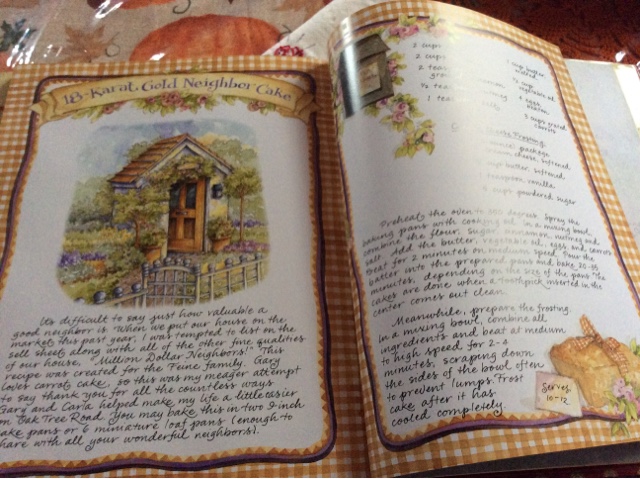 18-Karat Gold Neighbor Cake
It's difficult to say just how valuable a
good neighbor is. When we put our house on the
market this past year, I was tempted to list on the
sell sheet along with all of the other fine qualities
of our house, "Million Dollar Neighbors!" This
recipe was created for the Fune family. Gary
loves carrot cake, so this was my meager attempt
to say thank you for all the countless ways
Gary and Carla helped make my life a little easier
on Oak Tree Road. You may bake this in two 9-inch
cake pans or 6 miniature loaf pans (enough to
share with all your wonderful neighbors).
2 cups
2 cups
2 teas
½ teas
1 teas
1 cup butter,
softened
vegetable oil
4 eggs,
3 cups grated
carrots
Frosting:
package
cream cheese, softened
cup butter, softened
1 teaspoon vanilla
4 cups powdered sugar
Preheat the oven to 350 degrees. Spray the
baking pans with cooking oil. In a mixing bowl,
combine the flour, sugar, cinnamon, nutmeg and
salt. Add the butter, vegetable oil, eggs, and carrots.
Beat for 2 minutes on medium speed. Pour the
batter into the prepared pans and bake 20-35
minutes, depending on the size of the pans. The
cakes are done when a toothpick inserted in the
center comes out clean.
Meanwhile, prepare the frosting.
In a mixing bowl, combine all
ingredients and beat at medium
to high speed for 2-4
minutes, scraping down
the sides of the bowl often
to prevent lumps. Frost
cake after it has
cooled completely.
Serves
10-12